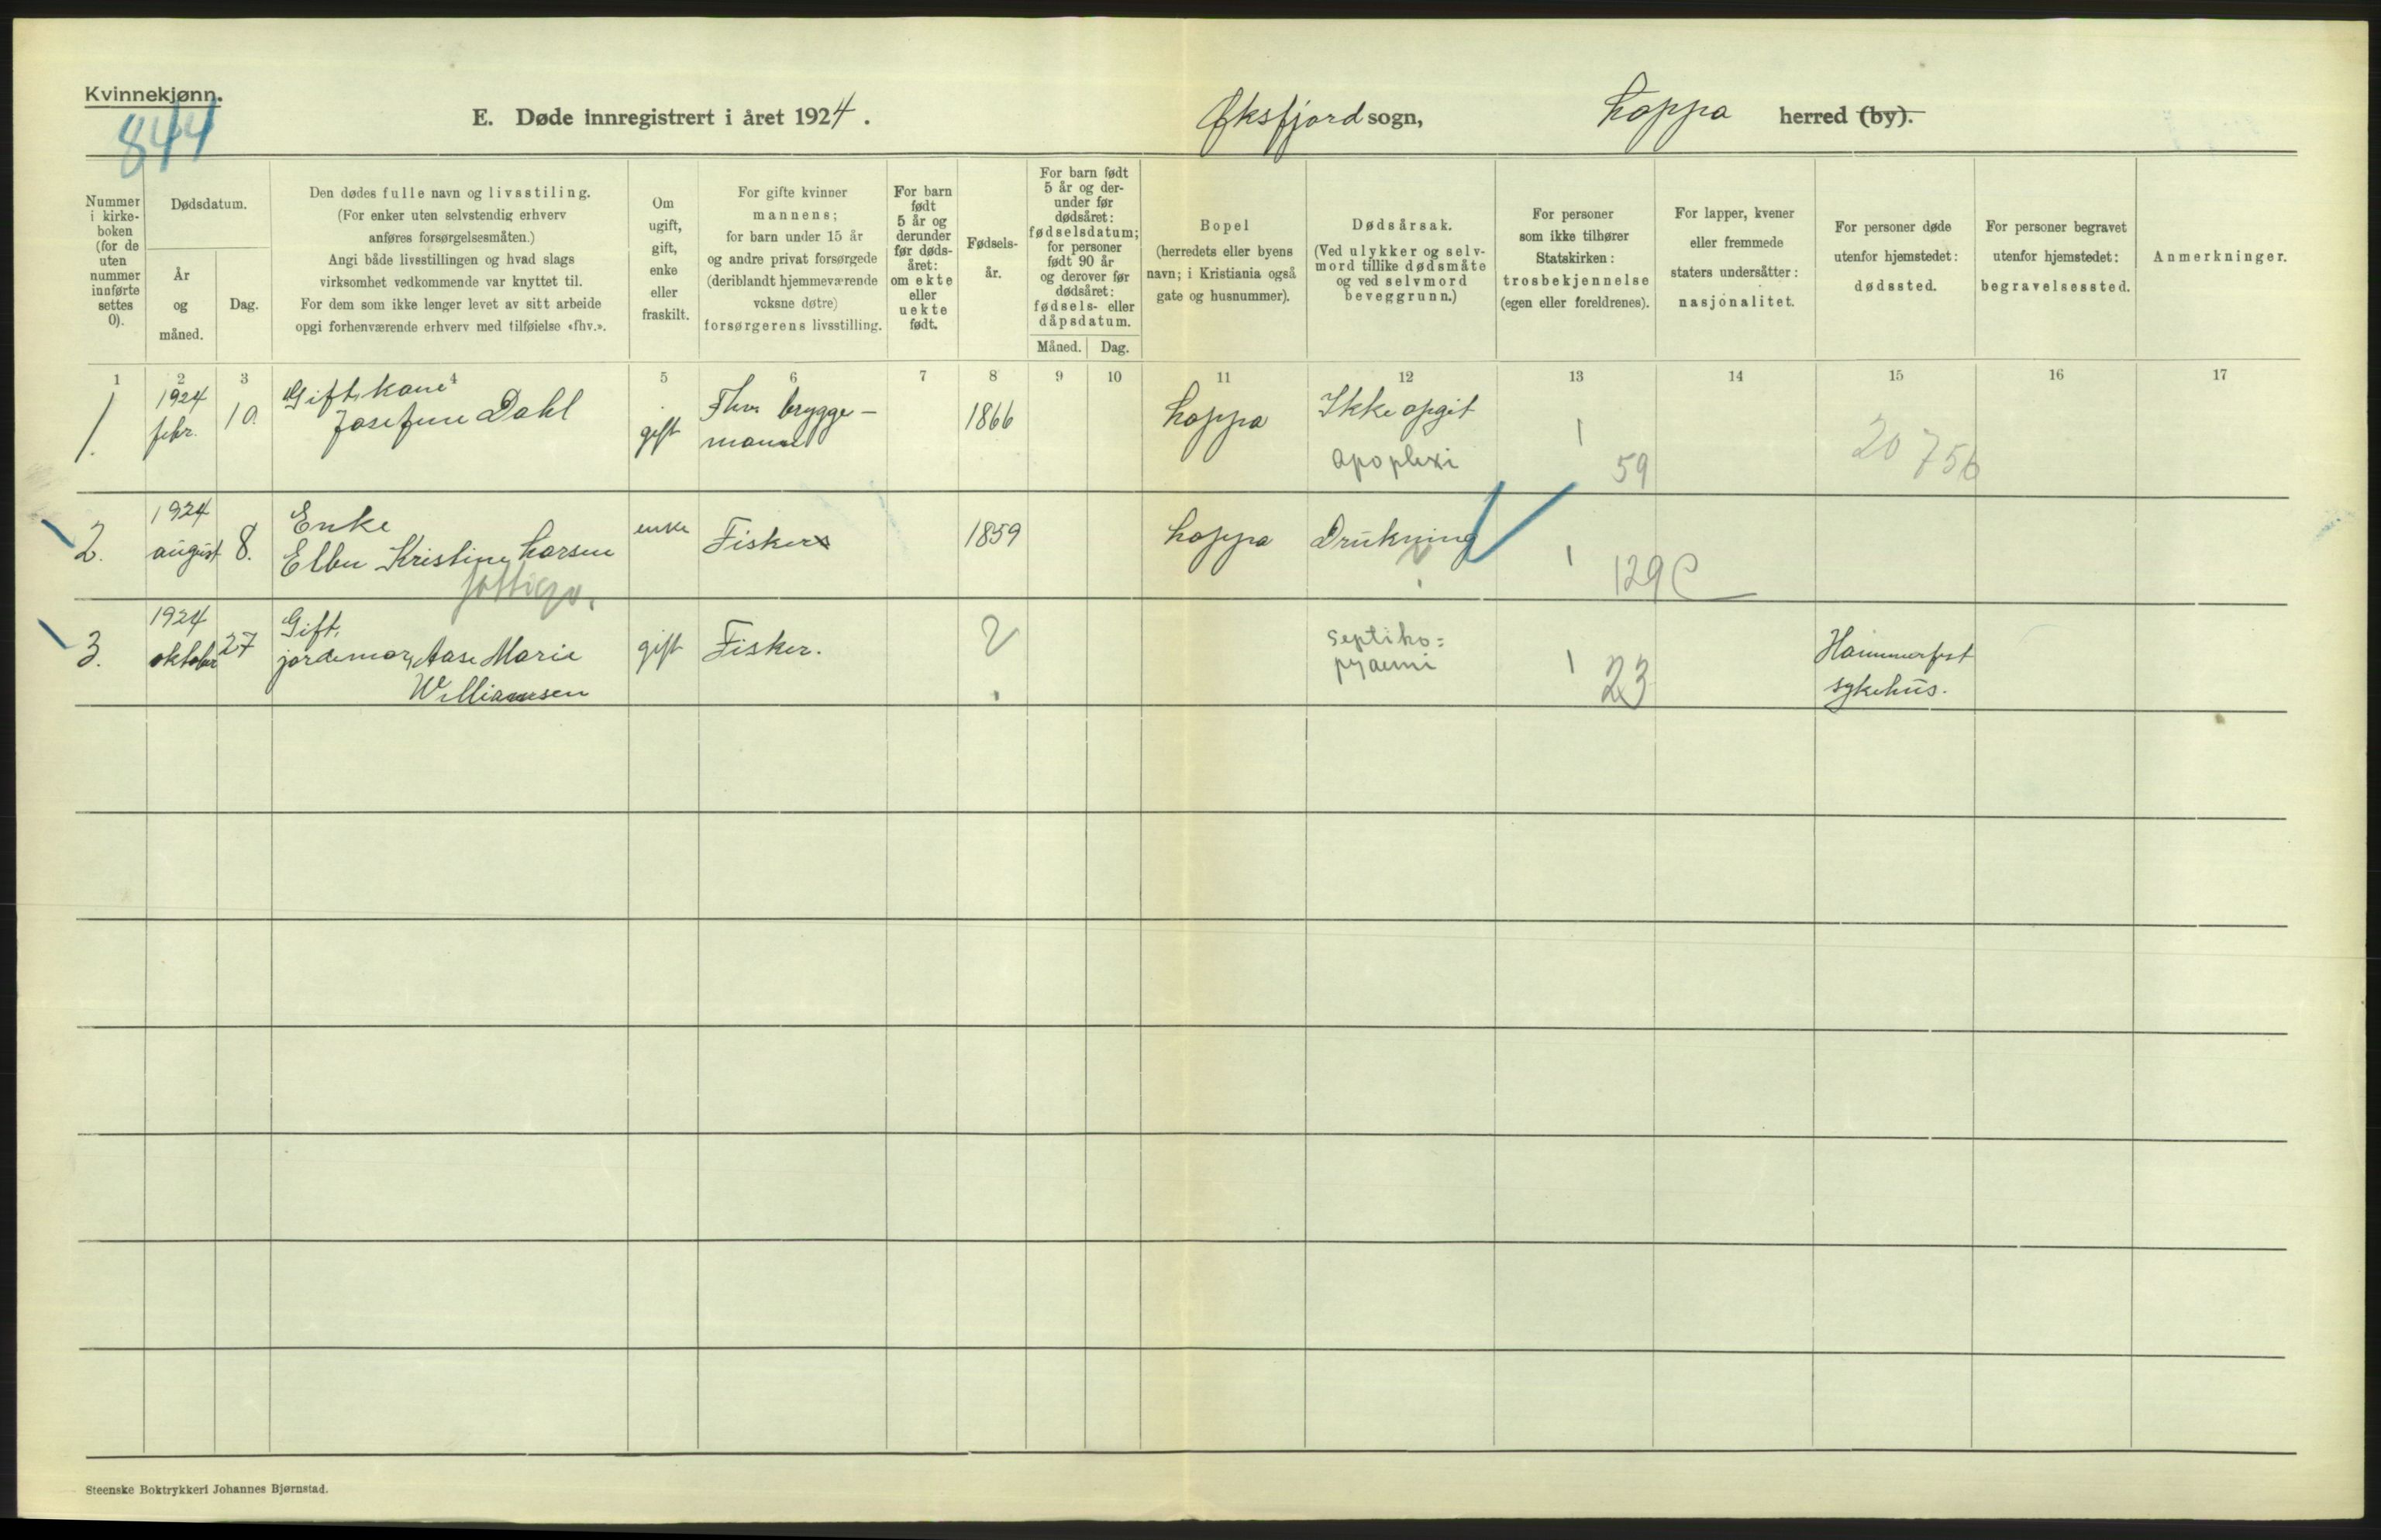 Kvinnekjønn.
844
E. Døde innregistrert i året 1924.
Øksfjord sogn,
Loppa herred (by).
Nummer i kirke- boken (for de uten nummer innførte settes 0).
Dødsdatum.
År og måned.
Dag.
Den dødes fulle navn og livsstiling.
(For enker uten selvstendig erhverv
anføres forsørgelsesmåten.)
Angi både livsstillingen og hvad slags
virksomhet vedkommende var knyttet til.
For dem som ikke lenger levet av sitt arbeide
opgi forhenværende erhverv med tilføielse «fhv.».
Om ugift, gift, enke eller fraskilt.
For gifte kvinner
mannens;
for barn under 15 år
og andre privat forsørgede
(deriblandt hjemmeværende
voksne døtre)
forsørgerens livsstilling.
For barn født 5 år og derunder før døds- året: om ekte eller uekte født.
Fødsels- år.
For barn født
5 år og der-
under før
dødsåret:
fødselsdatum;
for personer
født 90 år
og derover før
dødsåret:
fødsels- eller
dåpsdatum.
Måned. Dag.
Bopel
(herredets eller byens
navn; i Kristiania også
gate og husnummer).
Dødsårsak.
(Ved ulykker og selv-
mord tillike dødsmåte
og ved selvmord
beveggrunn.)
For personer
som ikke tilhører
Statskirken:
trosbekjennelse
(egen eller foreldrenes).
For lapper, kvener
eller fremmede
staters undersåtter:
nasjonalitet.
For personer døde
utenfor hjemstedet:
dødssted.
For personer begravet
utenfor hjemstedet:
begravelsessted.
Anmerkninger.
1 2 3 4 5 6 7 8 9 10 11 12 13 14 15 16 17
1. 1924 febr. 10. Gift, kone Josefine Dahl gift Fhv. brygge- mann 1866 Loppa Ikke opgit
apoplexi 1 59 20756
2. 1924 august 8. Enke Ellen Kristine Larsen enke Fiskers 1859 Loppa Drukning
1 129 C
3. 1924 oktober 27 Gift, jordemor, Aase Marie Williamsen gift Fisker. ? septiko= pyaemi 1 23 Hammerfest sykehus.
Steenske Boktrykkeri Johannes Bjørnstad.